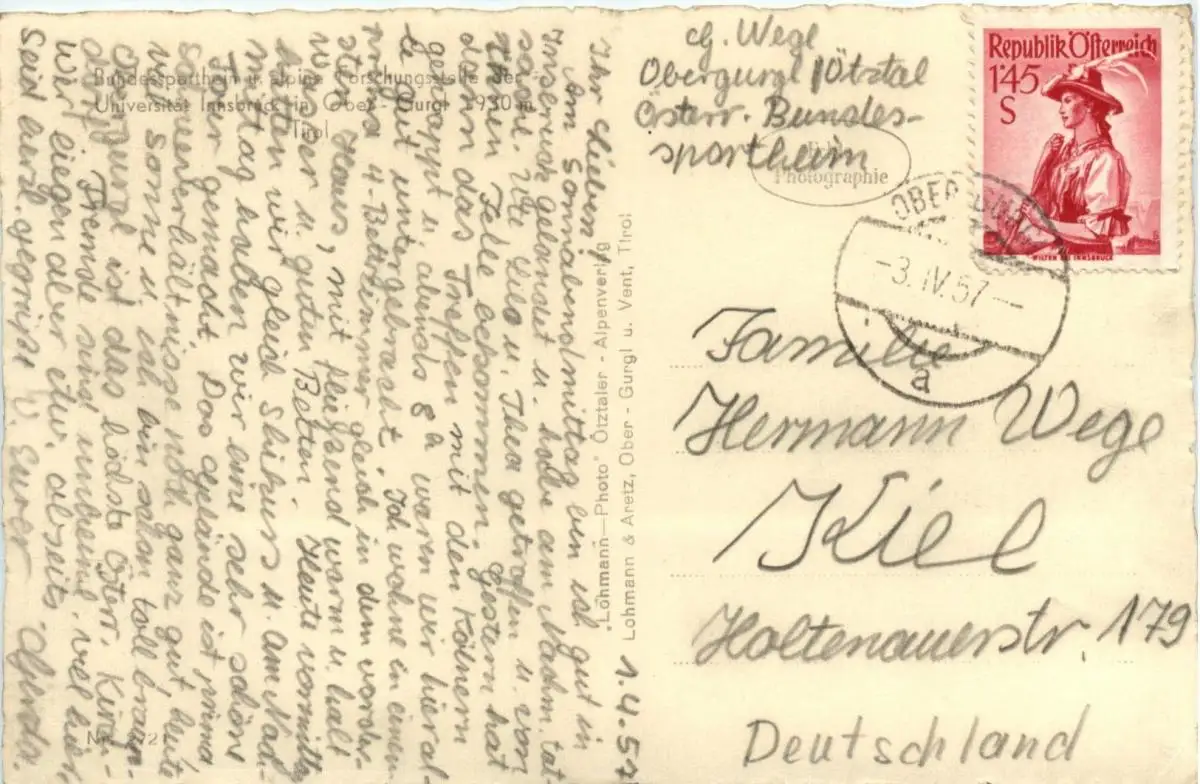 cg. Wege
Obergurgl / Ötztal
Österr. Bundes-
sportheim
Photographie
Republik Österreich
1'45
S
WILTEN BEI INNSBRUCK
-3. IV. 57-
a
Familie
Hermann Wege
Kiel
Holtenauerstr. 179
Deutschland
Bundessportheim u. alpine Forschungsstelle der
Universität Innsbruck in Ober-Gurgl 1930 m
Tirol
"Lohmann—Photo" Ötztaler - Alpenverlg
Lohmann & Aretz, Ober - Gurgl u. Vent, Tirol
1.4.57
Ihr Lieben!
Am Sonnabendmittag bin ich gut in
Innsbruck gelandet u. habe am Nachm. tat-
sächl. Ute Lilo u. Thea getroffen u. von
ihnen Felle bekommen. Gestern hat
dann das Treffen mit den Kölnern
geklappt u. abends 8h waren wir hier al-
le gut untergebracht. Ich wohne in einem
prima 4-Bettzimmer gleich in dem vorder-
sten Haus, mit fließend warm u. kalt
Wasser u. guten Betten. Heute vormittag
hatten wir gleich Skikurs u. am Nach-
mittag haben wir eine sehr schöne
Tour gemacht. Das Gelände ist prima
Schneeverhältnisse noch ganz gut, heute
viel Sonne u. ich bin schon toll braun.
Obergurgl ist das höchste österr. Kirch-
dorf. Fremde sind viel hier,
Wir liegen aber etw. abseits.
Seid herzl. gegrüßt v. Eurer Gerda.